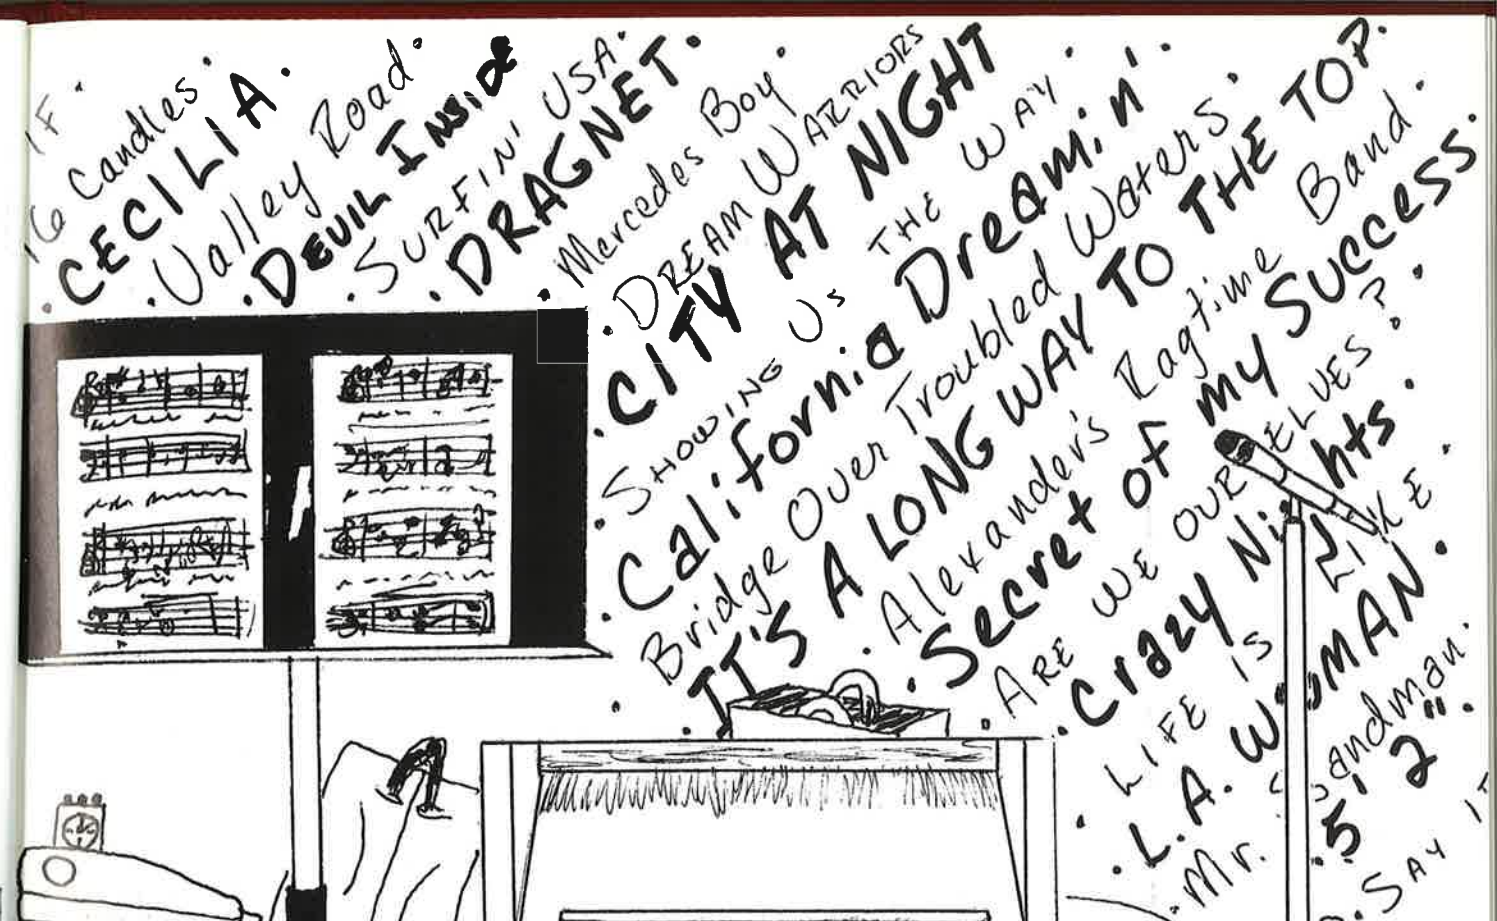 IF
16 Candles
CECILIA
Valley Road
DEVIL INSIDE
SURFIN' USA
DRAGNET
Mercedes Boy
DREAM WARRIORS
CITY AT NIGHT
SHOWING US THE WAY
California Dreamin'
Bridge Over Troubled Waters
IT'S A LONG WAY TO THE TOP
Alexander's Ragtime Band
Secret of my Success
ARE WE OURSELVES?
Crazy Nights
LIFE IS LIKE
L.A. WOMAN
Mr. Sandman
5' 2"
SAY IT